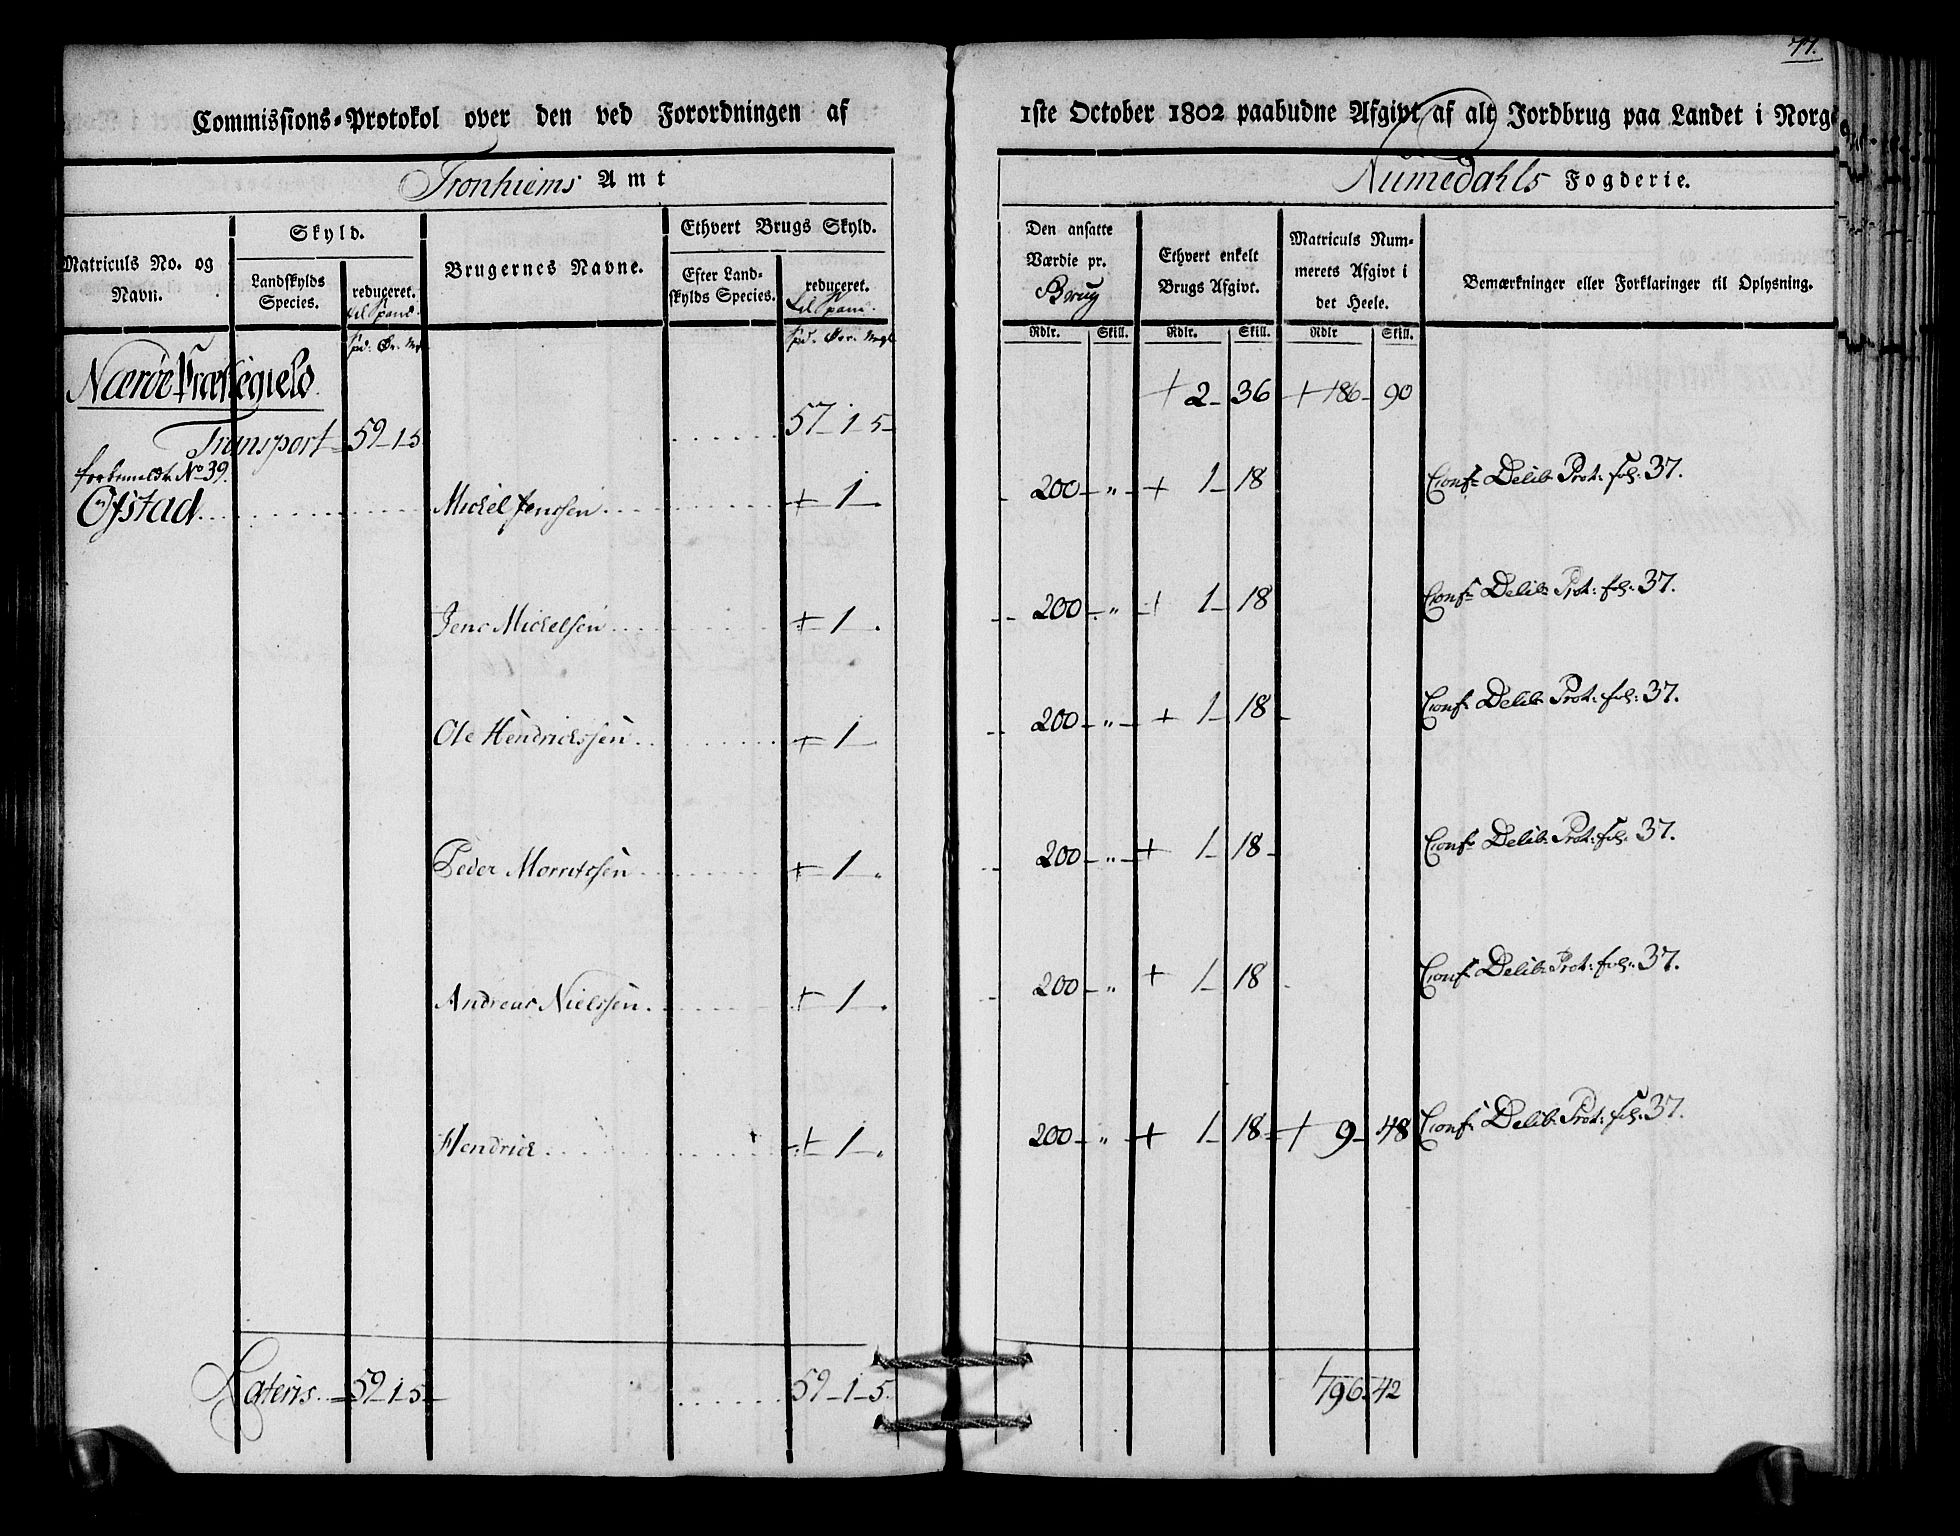 77.
Commissions-Protokol over den ved Forordningen af 1ste October 1802 paabudne Afgivt af alt Jordbrug paa Landet i Norge
Tronhiems Amt
Numedahls Fogderie.
Matriculs No. og Navn.
Skyld.
Landskylds Species.
reduceret. til Spand.
Brugernes Navne.
Ethvert Brugs Skyld.
Efter Landskylds Species.
reduceret. til Spand.
Den ansatte Værdie pr. Brug
Ethvert enkelt Brugs Afgivt.
Matriculs Nummerets Afgivt i det Heele.
Bemærkninger eller Forklaringer til Oplysning.
Rdlr. Skill. Rdlr. Skill. Rdlr Skill.
Nærøe Præstegield
+ 2 - 36 + 186 - 90
Transport 59 - 1 - 5 57 - 1 - 5
forbemeldt No 39.
Ofstad Michel Jenssen + 1 200 - " + 1 - 18 Conf: Delib: Prot: fol: 37.
Jens Michelsen + 1 200 - " + 1 - 18 Conf: Delib: Prot: fol: 37.
Ole Hendrichssen + 1 200 - " + 1 - 18 Conf: Delib: Prot: fol: 37.
Peder Morritssen + 1 200 - " + 1 - 18 Conf: Delib: Prot: fol: 37.
Andreas Nielssen + 1 200 - " + 1 - 18 Conf: Delib: Prot: fol: 37.
Hendrich + 1 200 - " + 1 - 18 + 9 - 48 Conf: Delib: Prot: fol: 37.
Lateris 59 - 1 - 5 59 - 1 - 5 196 - 42